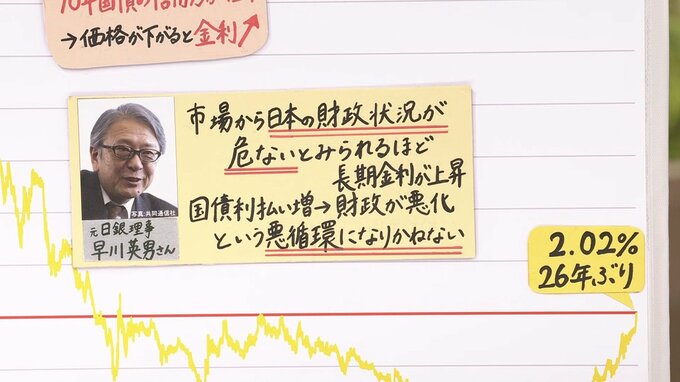 →価格が下がると金利↗
市場から日本の財政状況が
危ないとみられるほど
長期金利が上昇
国債利払い増→財政が悪化
という悪循環になりかねない
写真:共同通信社
元日銀理事
早川英男さん
2.02%
26年ぶり